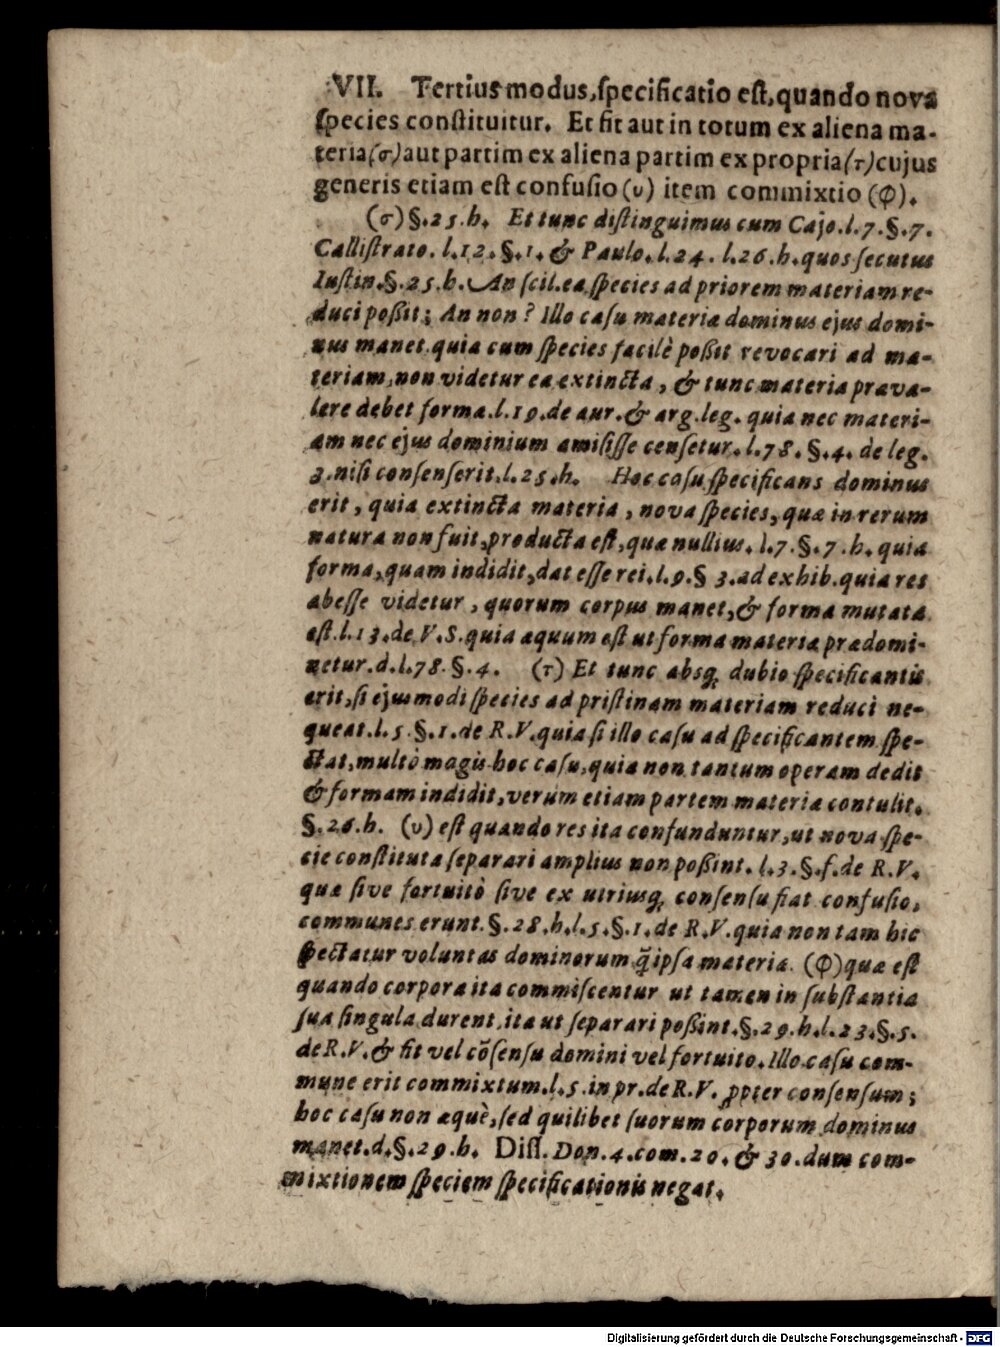 VII. Tertius modus, specificatio est, quando nova
species constituitur. Et fit aut in totum ex aliena ma-
teria (σ) aut partim ex aliena partim ex propria (τ) cujus
generis etiam est confusio (υ) item commixtio (φ).
(σ) §. 25. h. Et tunc distinguimus cum Cajo. l. 7. §. 7.
Callistrato. l. 12. §. 1. & Paulo. l. 24. l. 26. h. quos secutus
Iustin. §. 25. h. An scil. ea species ad priorem materiam re-
duci poßit; An non? Illo casu materiæ dominus ejus domi-
nus manet. quia cum species facilè poßit revocari ad ma-
teriam, non videtur ea extincta, & tunc materia præva-
lere debet formæ. l. 19. de aur. & arg. leg. quia nec materi-
am nec ejus dominium amisisse censetur. l. 78. §. 4. de leg.
3. nisi consenserit. l. 25. h. Hoc casu specificans dominus
erit, quia extincta materia, nova species, quæ in rerum
natura non fuit, producta est, quæ nullius. l. 7. §. 7. h. quia
forma, quam indidit, dat esse rei. l. 9. § 3. ad exhib. quia res
abesse videtur, quorum corpus manet, & forma mutata
est. l. 13. de V. S. quia æquum est ut forma materiæ prædomi-
netur. d. l. 78. §. 4. (τ) Et tunc absq; dubio specificantis
erit, si ejusmodi species ad pristinam materiam reduci ne-
queat. l. 5. §. 1. de R. V. quia si illo casu ad specificantem spe-
ctat, multò magis hoc casu, quia non tantum operam dedit
& formam indidit, verum etiam partem materiæ contulit.
§. 26. h. (υ) est quando res ita confunduntur, ut nova spe-
cie constituta separari amplius non poßint. l. 3. §. f. de R. V.
quæ sive fortuitò sive ex utriusq; consensu fiat confusio,
communes erunt. §. 28. h. l. 5. §. 1. de R. V. quia non tam hic
spectatur voluntas dominorum q̃ ipsa materia. (φ) quæ est
quando corpora ita commiscentur ut tamen in substantia
sua singula durent, ita ut separari poßint. §. 29. h. l. 23. §. 5.
de R. V. & fit vel cõsensu domini vel fortuito. Illo casu com-
mune erit commixtum. l. 5. in pr. de R. V. ꝓpter consensum;
hoc casu non æquè, sed quilibet suorum corporum dominus
manet. d. §. 29. h. Diss. Don. 4. com. 20. & 30. dum com-
mixtionem speciem specificationis negat.
Digitalisierung gefördert durch die Deutsche Forschungsgemeinschaft - DFG